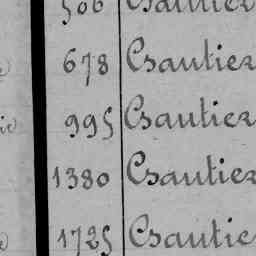 506 Csautier
678 Csautier
995 Csautier
1380 Csautier
1725 Csautie